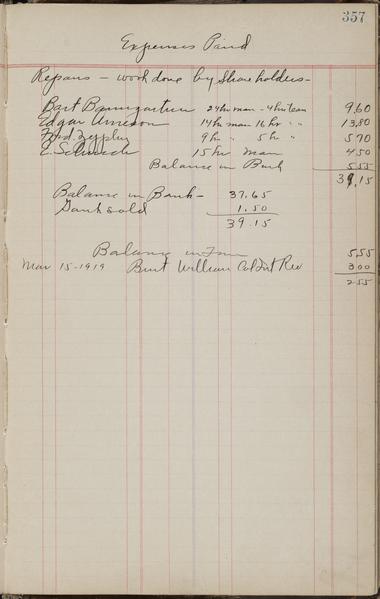 357
Expenses Paid
Repairs - work done by Share holders -
Bart Baumgartner 24 hr man - 4 hr team 9.60
Edgar Arneson 14 hr man 16 hr " " 13.80
9 hr " 5 hr " 5.70
E. Schmech 15 hr man 4.50
Balance in Bank 5.55
39.15
Balance in Bank - 37.65
sold 1.50
39.15
Balance in 5.55
Mar 15-1919 Burt William Rev 3.00
2.55